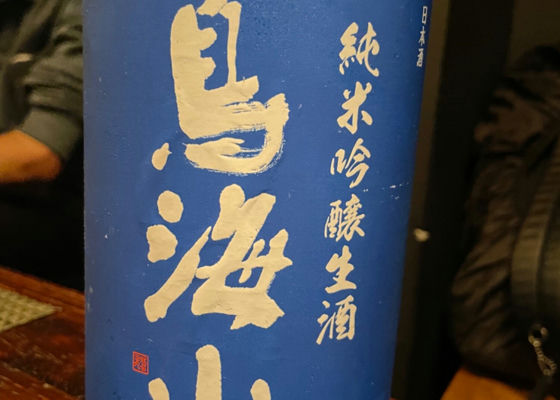 日本酒
純米吟醸生酒
鳥海山